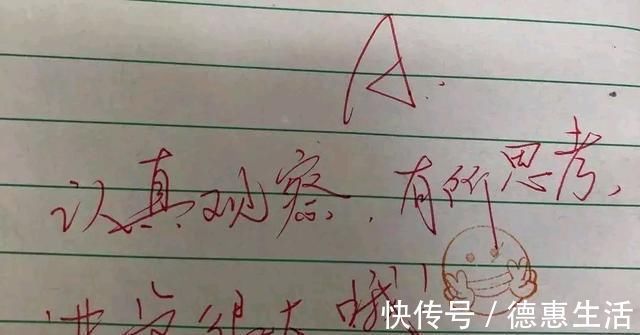 A.
认真观察，有所思考，
进步很大哦！
快传号／德惠生活